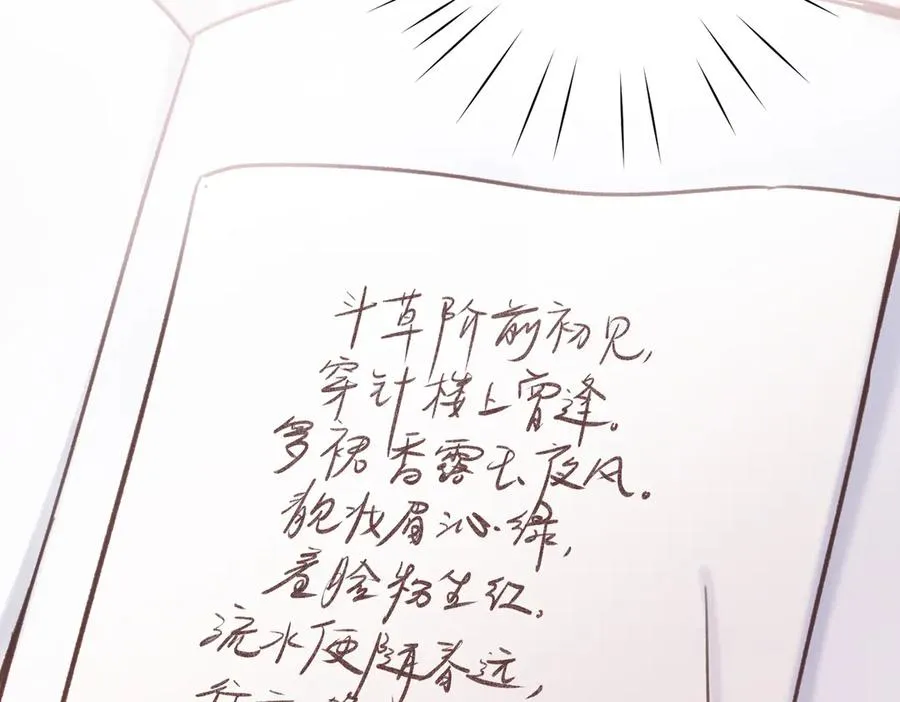 斗草阶前初见，
穿针楼上曾逢。
罗裙香露玉钗风。
靓妆眉沁绿，
羞脸粉生红。
流水便随春远，